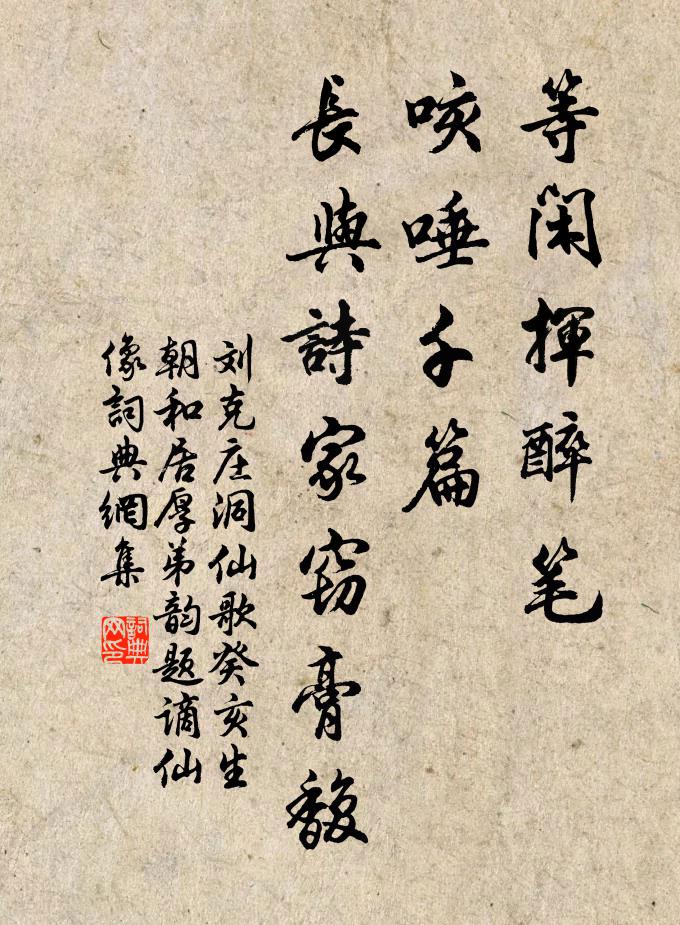 等闲揮醉笔
咳唾千篇
長與詩家窃膏馥
刘克庄洞仙歌癸亥生
朝和居厚弟韵题谪仙
像詞典網集
詞典
网印